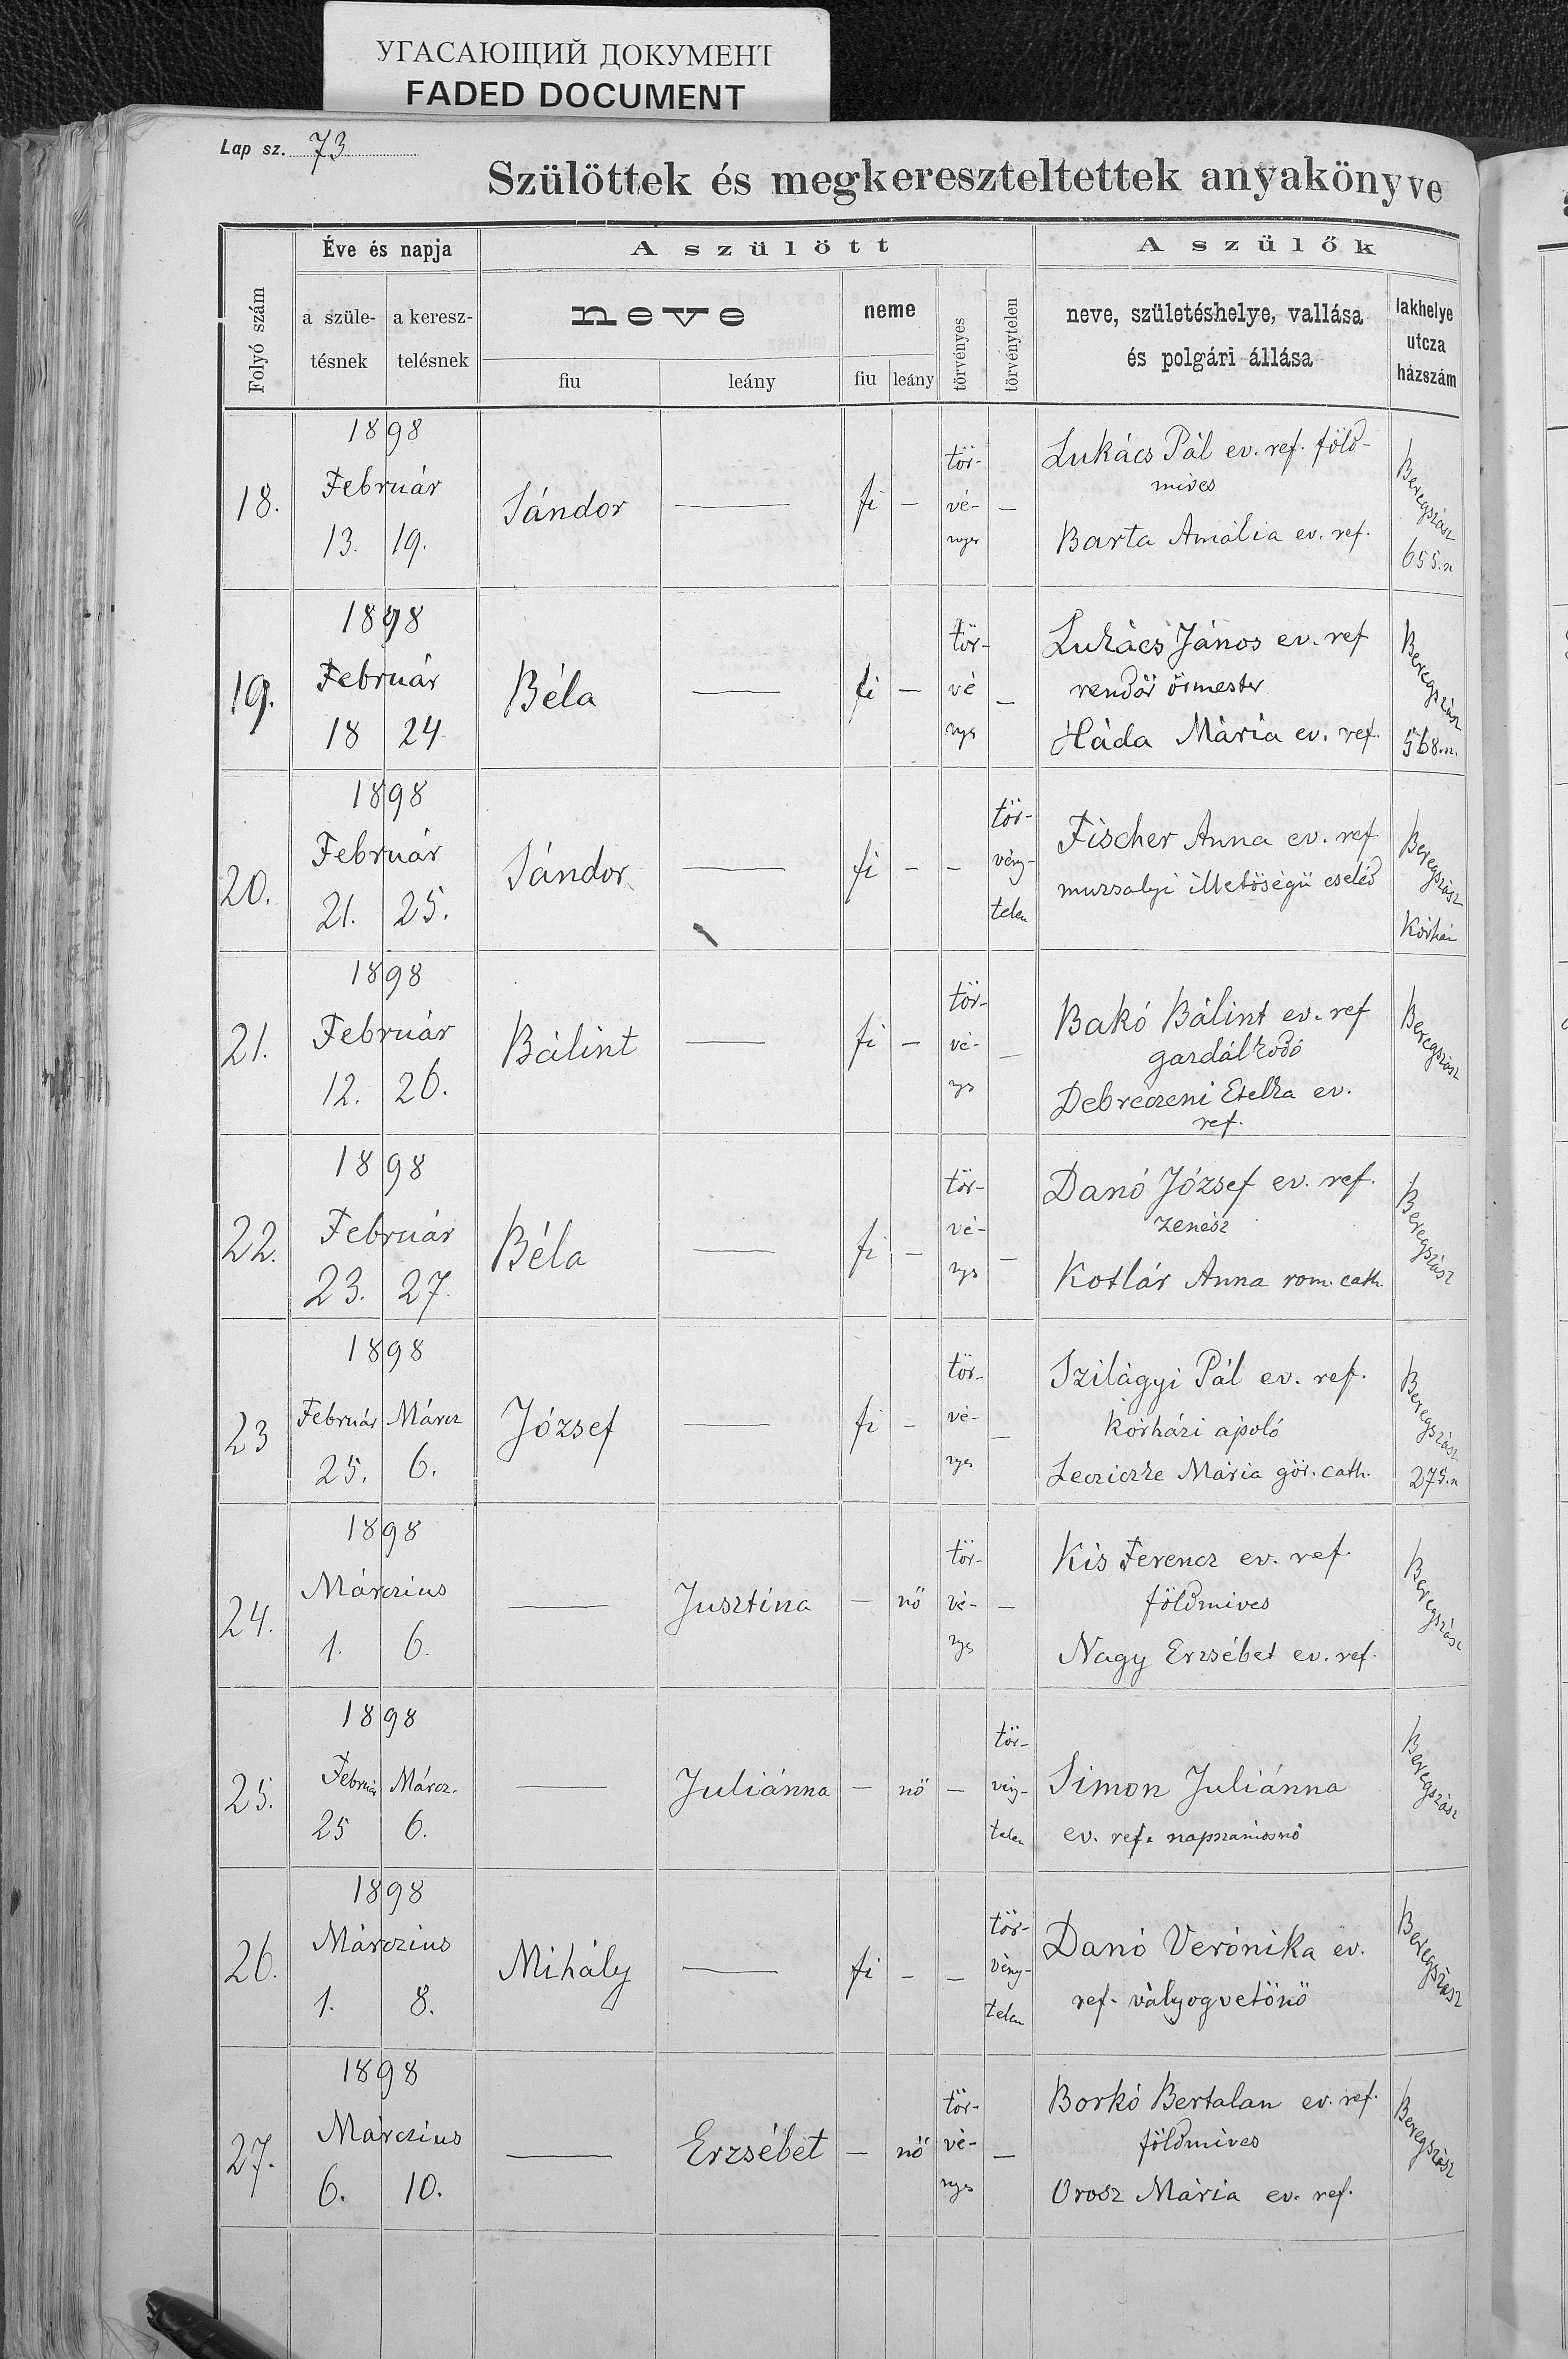 УГАСАЮЩИЙ ДОКУМЕНТ
FADED DOCUMENT
Lap sz. 73
Szülöttek és megkereszteltettek anyakönyve
Folyó szám
Éve és napja
a szüle-
tésnek
a keresz-
telésnek
A szülött
neve
fiu
leány
neme
fiu
leány
törvényes
törvénytelen
A szülők
neve, születéshelye, vallása
és polgári állása
lakhelye
utcza
házszám
18.
1898
Február
13. 19.
Sándor —
fi —
tör-
vé- —
nyes
Lukács Pál ev. ref. föld-
mives
Barta Amália ev. ref.
Beregszász
655.n
19.
1898
Február
18 24
Béla —
fi —
tör-
vé —
nys
Lukács János ev. ref
rendőr őrmester
Háda Mária ev. ref.
Beregszász
568.n.
20.
1898
Február
21. 25.
Sándor —
fi - -
tör-
vény-
telen
Fischer Anna ev. ref
muzsalyi illetőségü cseléd
Beregszász
Kórház
21.
1898
Február
12. 26.
Bálint —
fi —
tör-
vé- —
nys
Bakó Bálint ev. ref
gazdálkodó
Debreczeni Etelka ev.
ref.
Beregszász
22.
1898
Február
23. 27.
Béla —
fi —
tör-
vé- —
nys
Danó József ev. ref.
zenész
Kotlár Anna rom. cath.
Beregszász
23
1898
Február Márcz
25. 6.
József —
fi -
tör-
vé- —
nyes
Szilágyi Pál ev. ref.
kórházi ápoló
Mária gör. cath.
Beregszász
275.n
24.
1898
Márczius
1. 6.
— Jusztina
— nő
tör-
vé- —
nys
Kis Ferencz ev. ref
földmives
Nagy Erzsébet ev. ref.
Beregszász
25.
1898
Február Márcz.
25 6.
— Juliánna
— nő —
tör-
vény-
telen
Simon Juliánna
ev. ref. napszámosnő
Beregszász
26.
1898
Márczius
1. 8.
Mihály —
fi - —
tör-
vény-
telen
Danó Verónika ev.
ref. vályogvetőnő
Beregszász
27.
1898
Márczius
6. 10.
— Erzsébet
— nő
tör-
vé- —
nyes
Borkó Bertalan ev. ref.
földmives
Orosz Mária ev. ref.
Beregszász